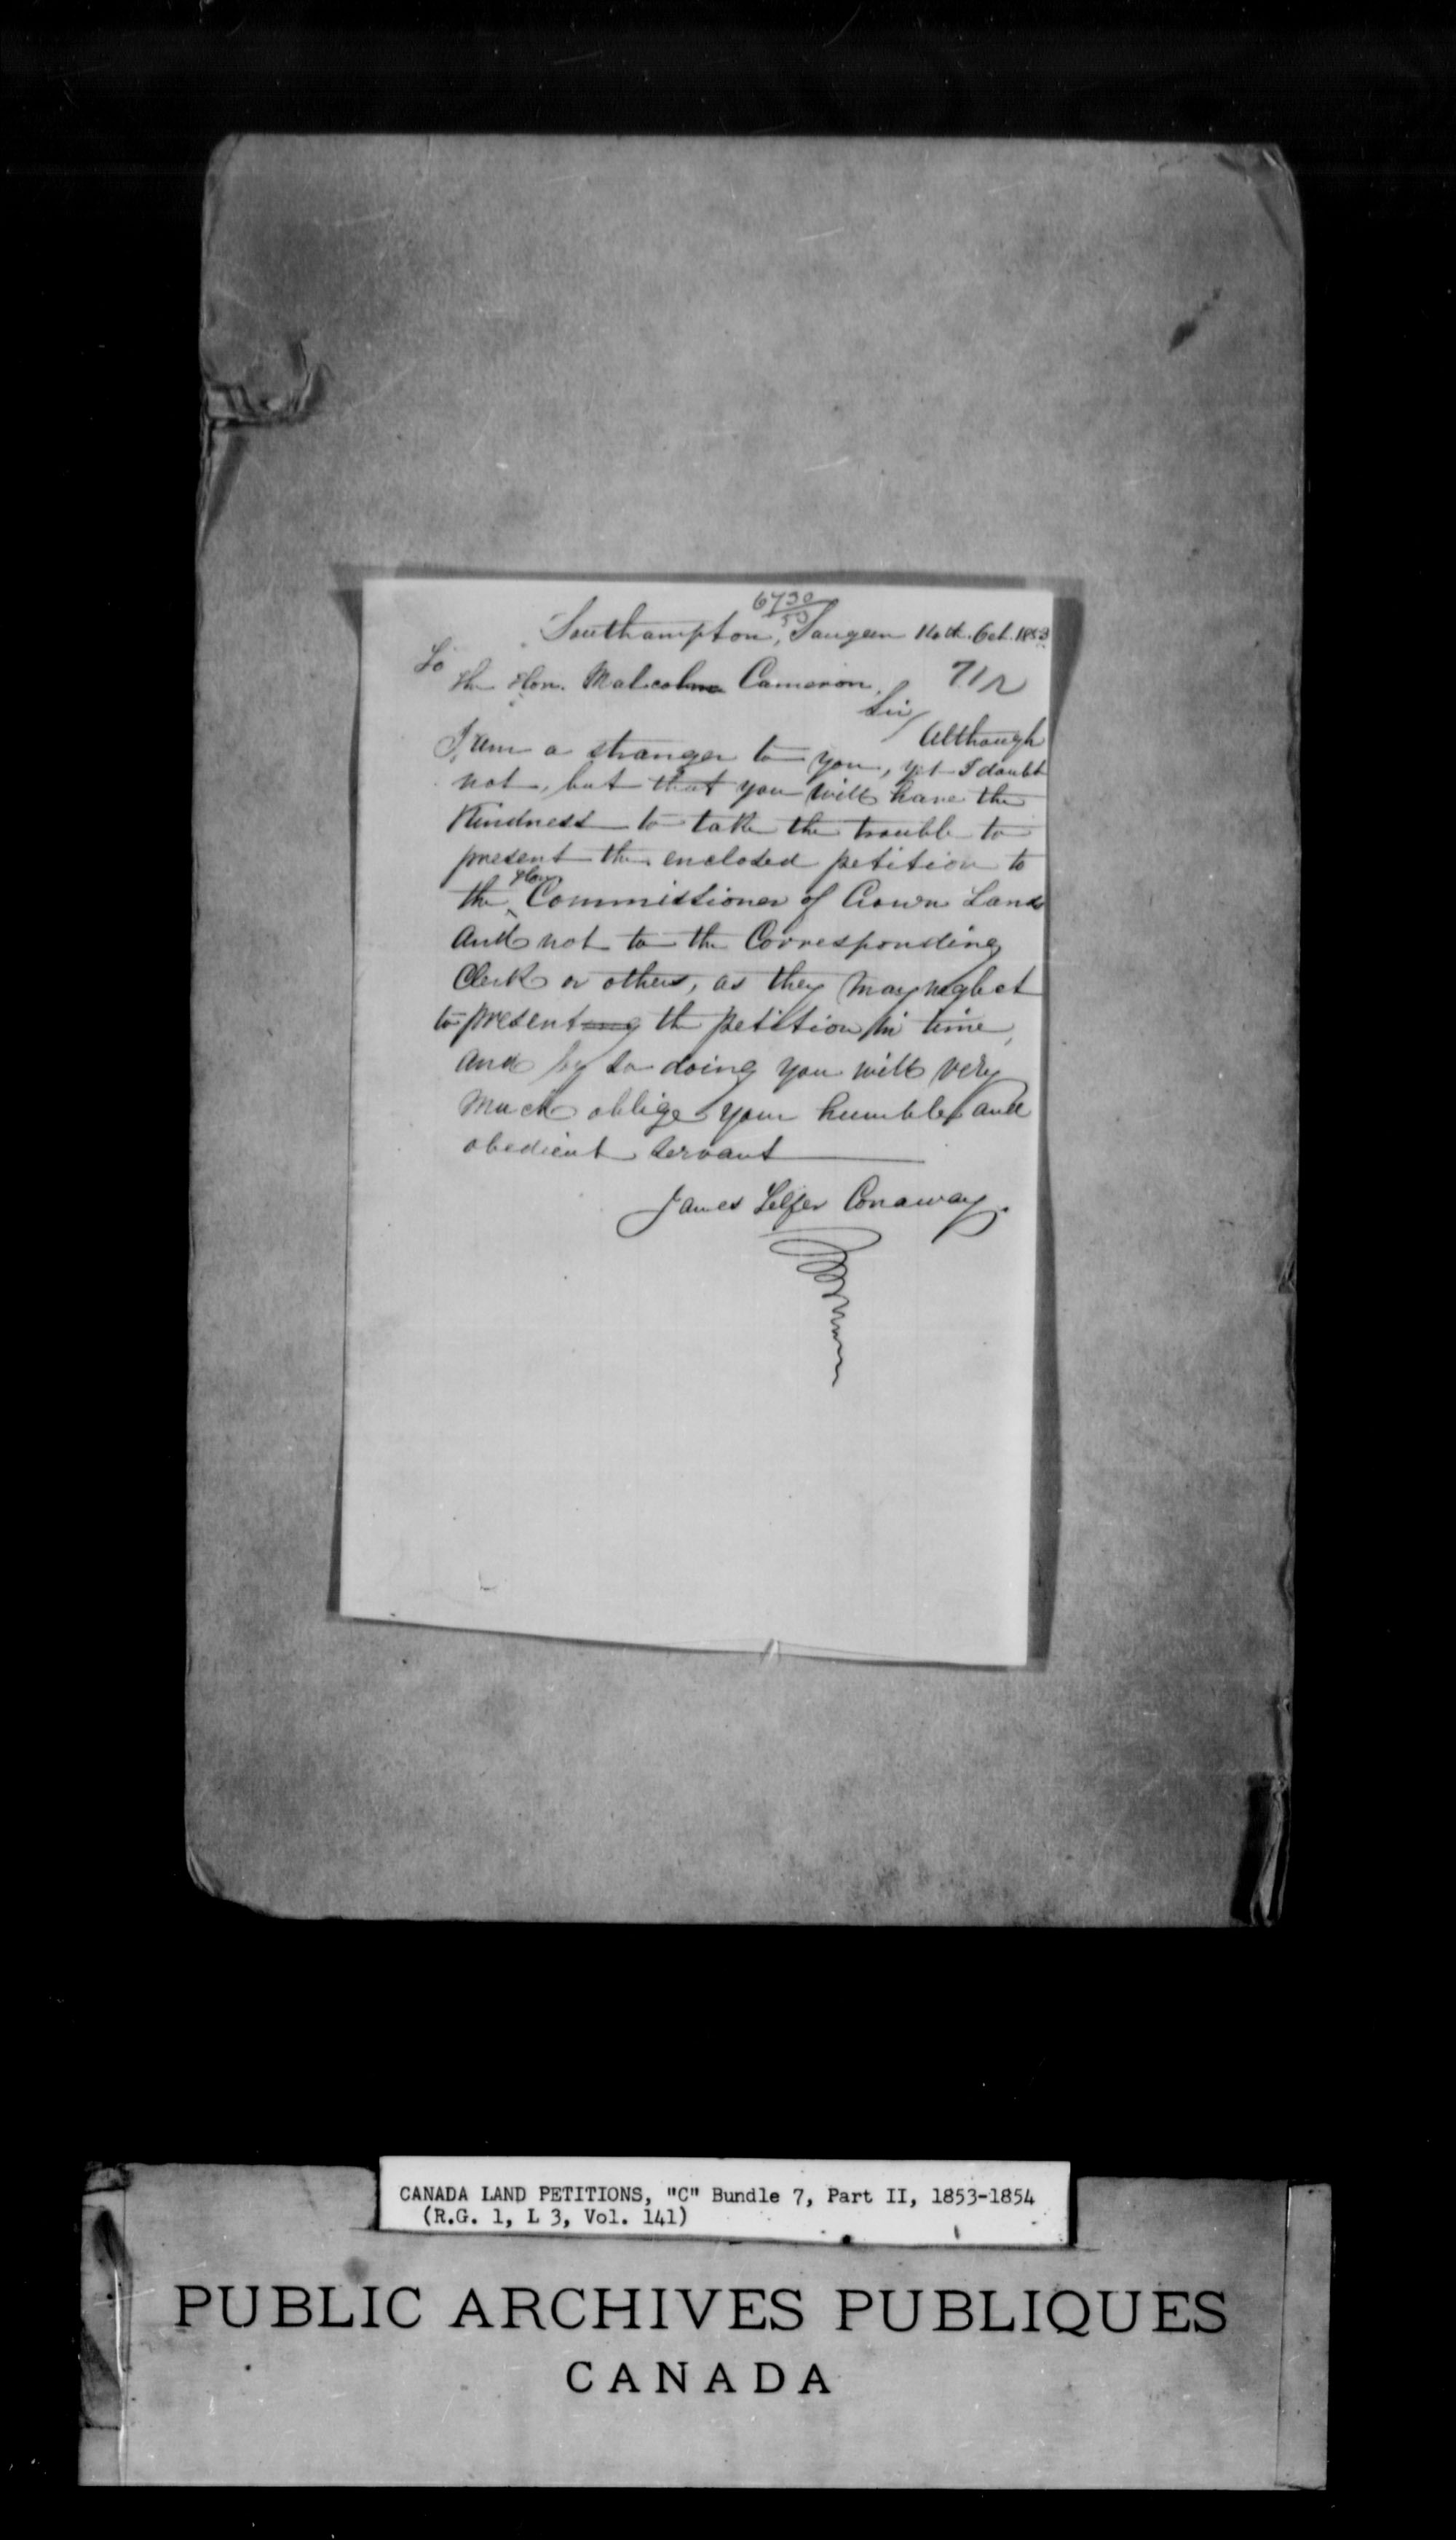 6730/53
Southampton, Saugeen 14th Oct. 1853
To
the Hon. Malcolm Cameron, 71
Sir/
Although
I am a stranger to you, yet I doubt
not, but that you will have the
kindness to take the trouble to
present the enclosed petition to
the Hon Commissioner of Crown Lands
and not to the Corresponding
Clerk or others, as they may neglect
to present the petition in time,
and by so doing you will very
much oblige your humble and
obedient servant
James Telfer Conaway.
CANADA LAND PETITIONS, "C" Bundle 7, Part II, 1853-1854
(R.G. 1, L 3, Vol. 141)
PUBLIC ARCHIVES PUBLIQUES
CANADA